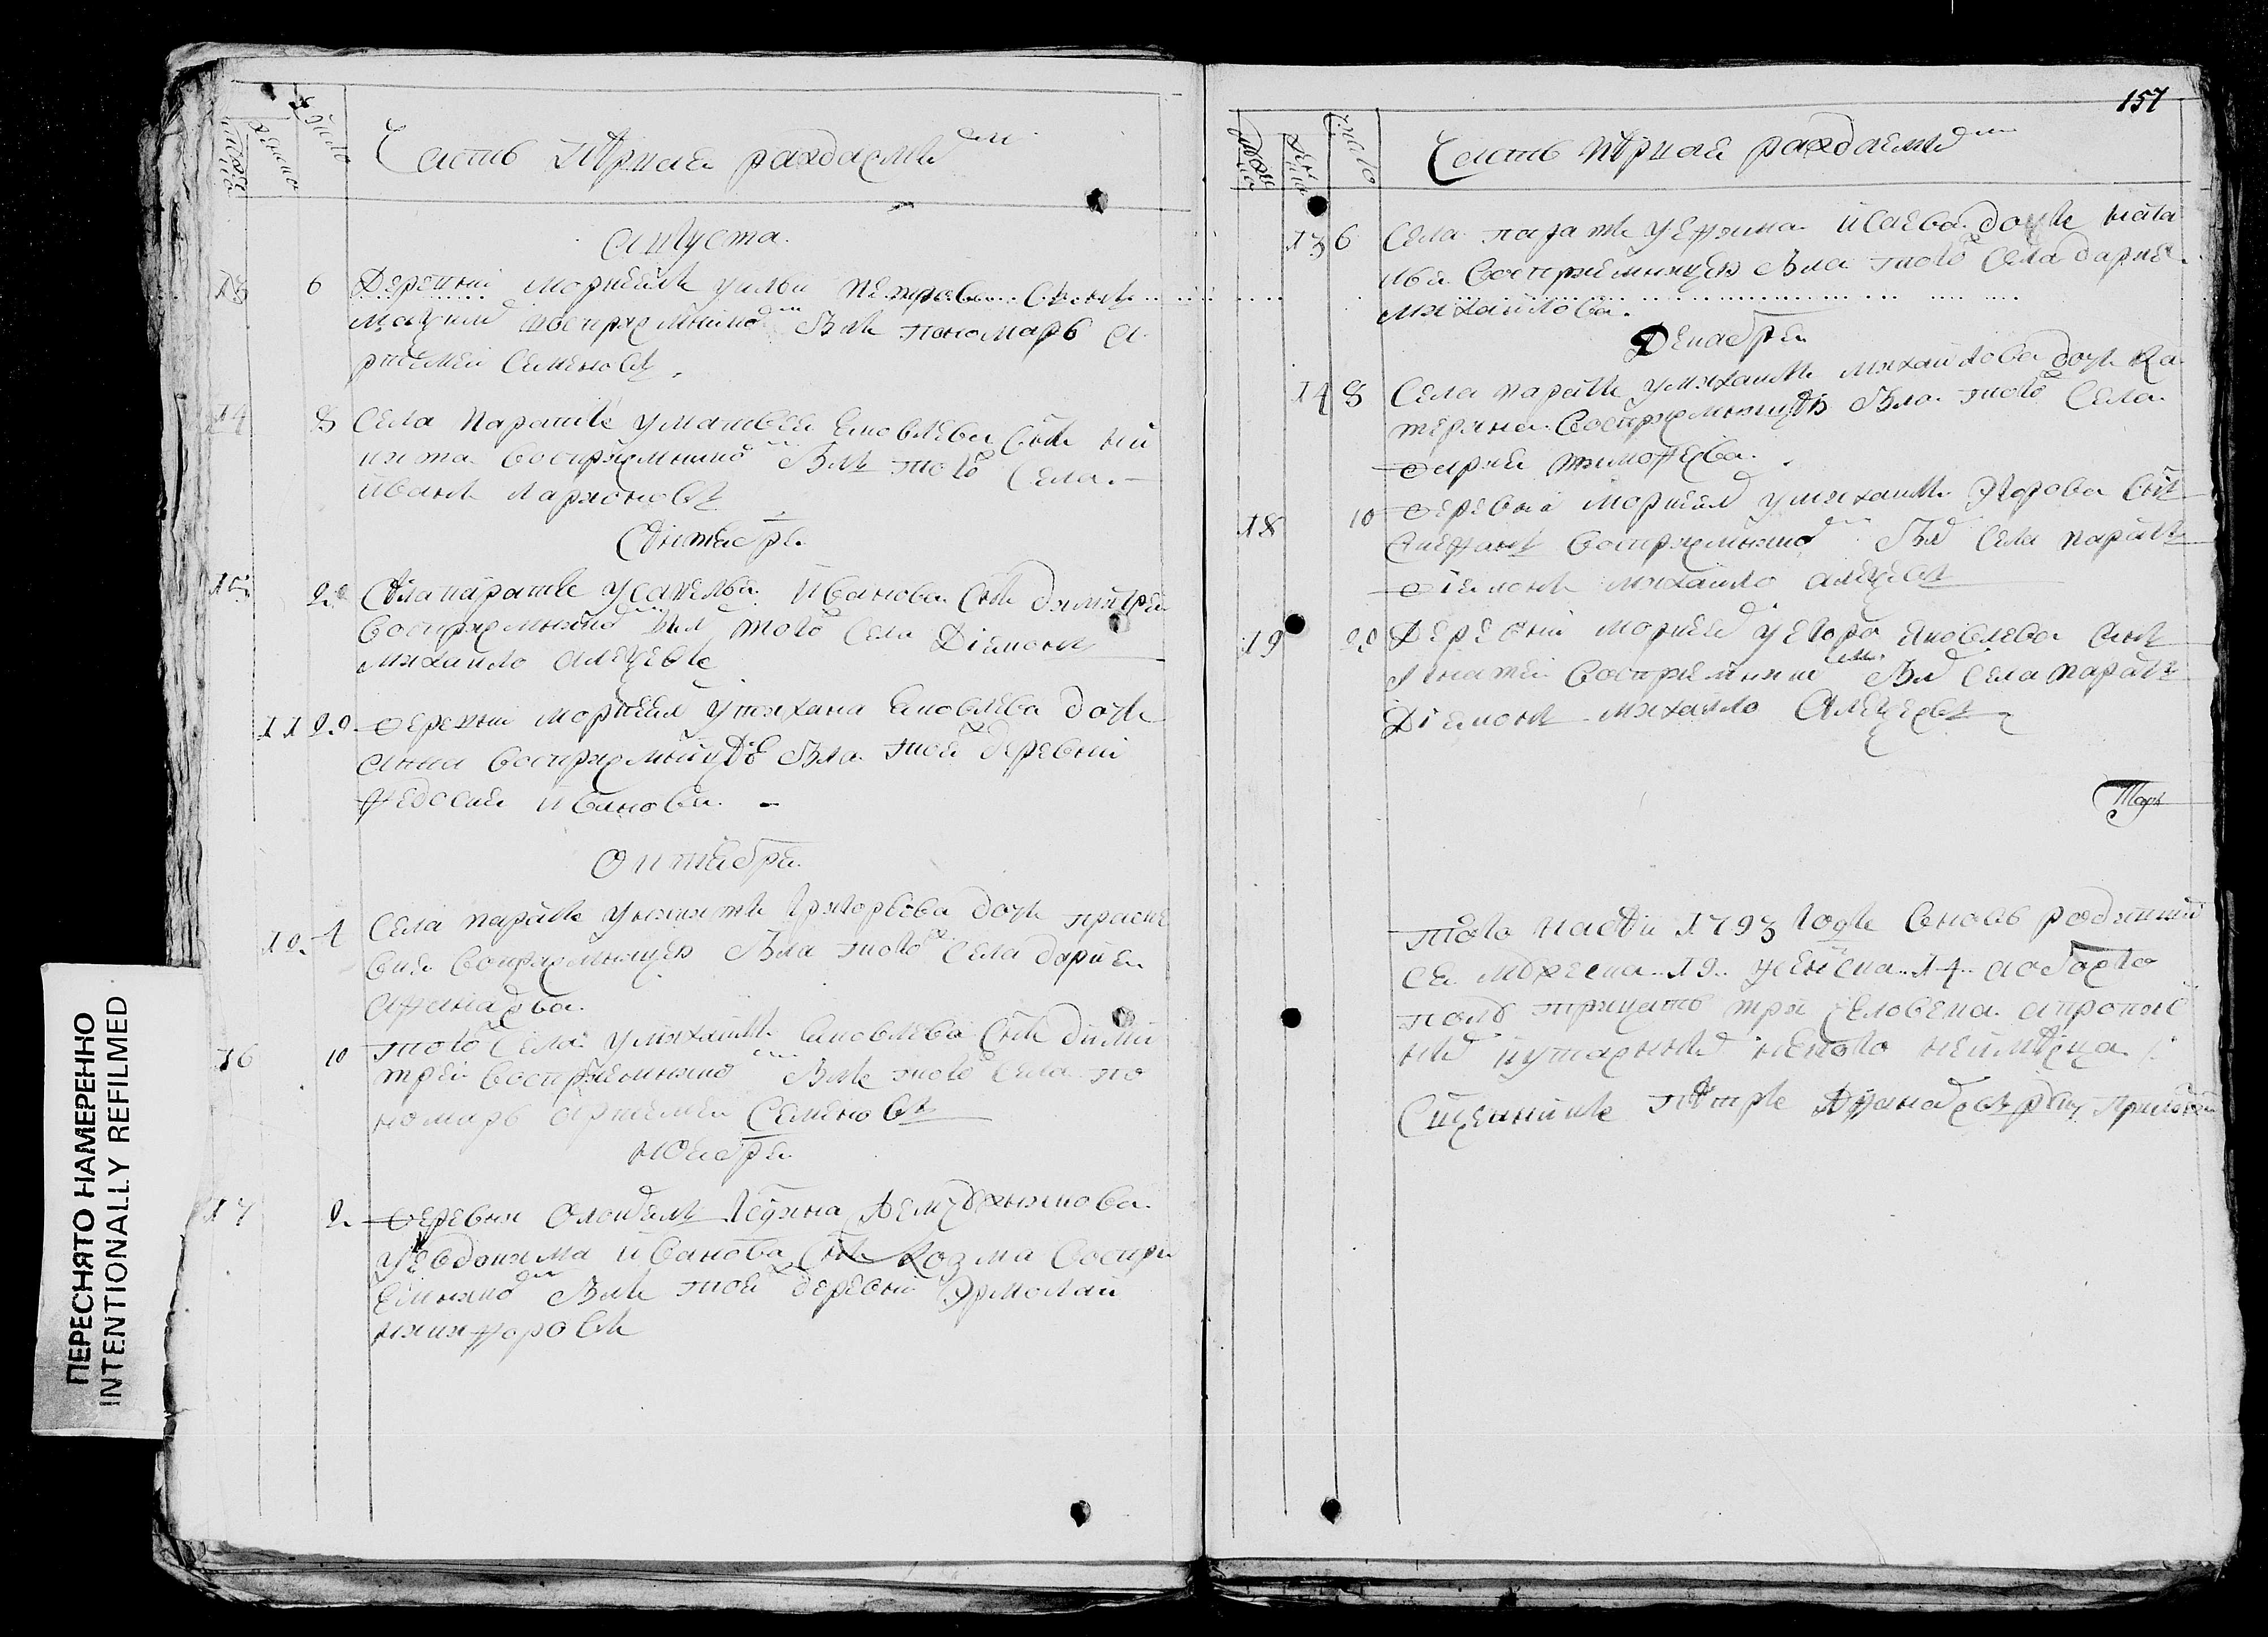 мужска
женско
число
Часть первая раждаемых
августа
13 6 Деревни моркеялъ у ильи петрова сынъ
восприемникомъ былъ пономарь а
ртемей Семеновъ
14 8 Села паратъ у матвея яковлева сынъ ни
кита восприемникомъ былъ того села
иванъ ларионовъ
Сентября
15 Села паратъ у савелья иванова сынъ димитрей
восприемникомъ былъ того села Дiяконъ
михаило алецеевъ
11 20 деревни моркеялъ яковлева дочь
анна восприемницею была той деревни
федосия иванова
октября
12 1 Села паратъ у никиты григорьева дочь праско
вия восприемницею была того села дария
афанасьева
16 10 того села у михаила яковлева сынъ дими
трей восприемникомъ былъ того села по
номарь артемей Семеновъ
ноября
17 2 деревни
у евдокима иванова сынъ козма воспри
емникомъ былъ той деревни Ермолай
никифоровъ
157
мужска
женска
число
Часть первая раждаемых
13 6 Села паратъ у исаева дочь ната
лья восприемницею была того села дария
михаилова
Декабря
14 8 Села паратъ у михаила михаилова дочь Ка
терина восприемницею была того села
дария тимофеева
18 10 деревни моркеялъ у михаила Егорова сынъ
Стефанъ восприемникомъ былъ села паратъ
дiяконъ михаило алецеевъ
19 20 Деревни моркеялъ у егора яковлева сынъ
Игнатей восприемникомъ былъ села паратъ
Дiяконъ михаило Алецеевъ
1793 года вновь родившихъ
ся мужеска 19 женска 14 а обоего
полу трицать три человека а пропис
ныхъ и утаеныхъ никого неимеется
Священникъ петръ Афанасьевъ руку приложилъ
ПЕРЕСНЯТО НАМЕРЕННО
INTENTIONALLY REFILMED